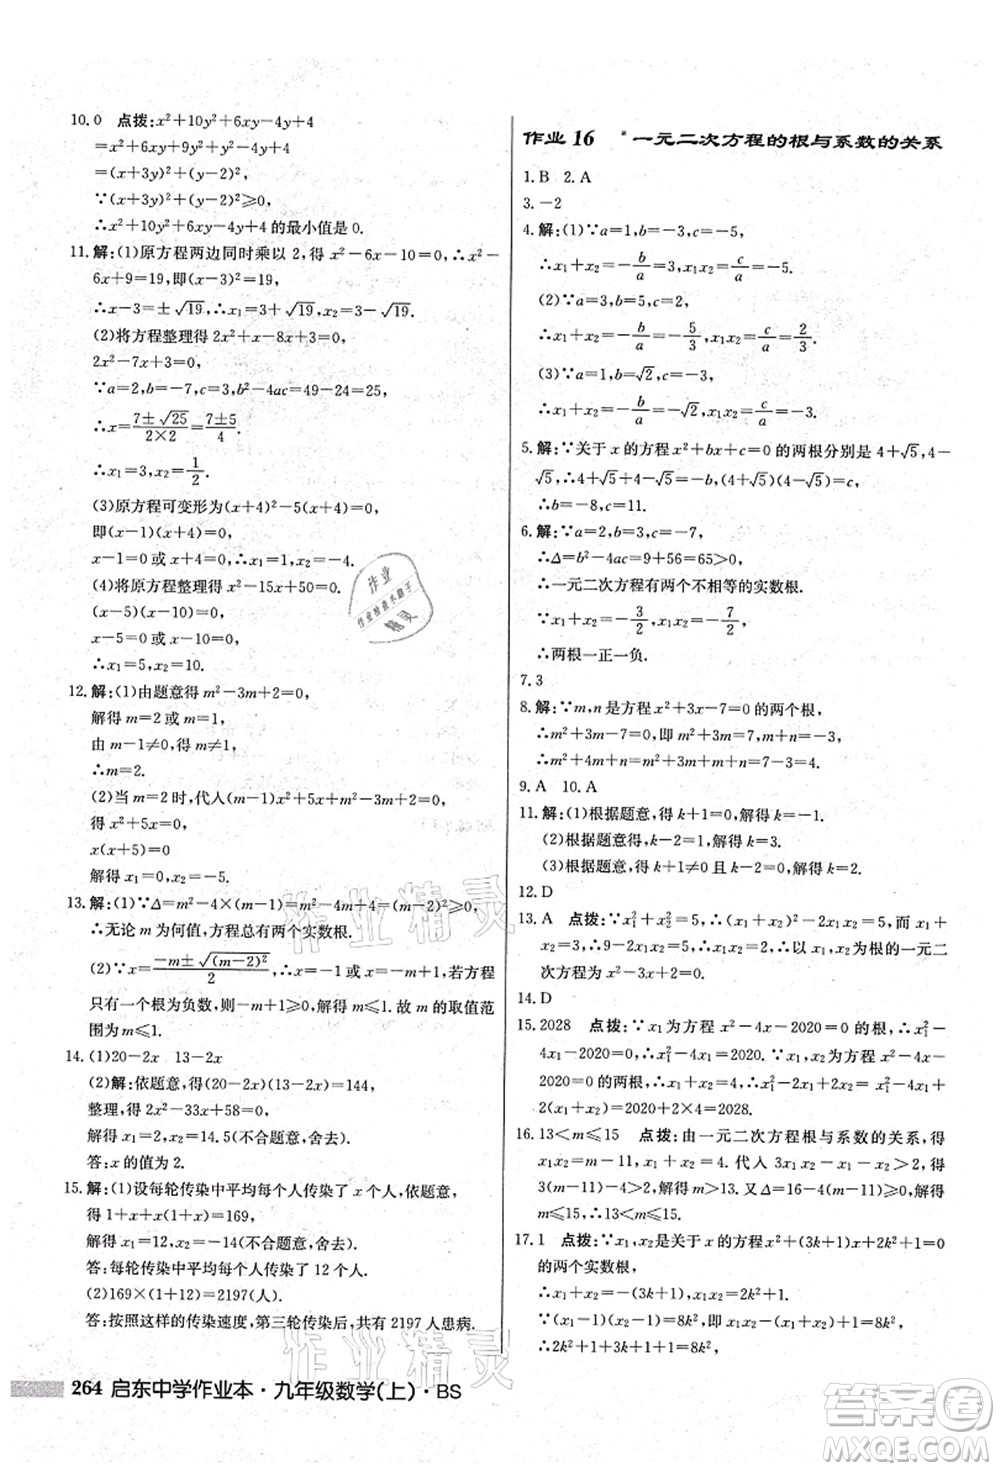 10. 0 点拨:x²+10y²+6xy-4y+4
=(x²+6xy+9y²)+(y²-4y+4)
=(x+3y)²+(y-2)².
∵(x+3y)²≥0,(y-2)²≥0,
∴x²+10y²+6xy-4y+4 的最小值是 0.
11. 解:(1)原方程两边同时乘以 2,得 x²-6x-10=0,∴x²-
6x+9=19,即(x-3)²=19,
∴x-3=±√19,∴x₁=3+√19,x₂=3-√19.
(2)将方程整理得 2x²+x-8x+3=0,
2x²-7x+3=0.
∵a=2,b=-7,c=3,b²-4ac=49-24=25,
∴x=(7±√25)/(2×2)=(7±5)/4,
∴x₁=3,x₂=1/2.
(3)原方程可变形为(x+4)²-5(x+4)=0,
即(x-1)(x+4)=0,
x-1=0 或 x+4=0,∴x₁=1,x₂=-4.
(4)将原方程整理得 x²-5x-10x+50=0,
(x-5)(x-10)=0,
x-5=0 或 x-10=0,
∴x₁=5,x₂=10.
12. 解:(1)由题意得 m²-3m+2=0,
解得 m=2 或 m=1,
由 m-1≠0,可得 m≠1,
∴m=2.
(2)当 m=2 时,代入(m-1)x²+5x+m²-3m+2=0,
得 x²+5x=0,
x(x+5)=0
解得 x₁=0,x₂=-5.
13. 解:(1)∵Δ=m²-4×(m-1)=m²-4m+4=(m-2)²≥0,
∴无论 m 为何值,方程总有两个实数根.
(2)∵x=(-m±√(m-2)²)/2,∴x₁=-1,x₂=-m+1,若方程
只有一个根为负数,则-m+1≥0,解得 m≤1.故 m 的取值范
围为 m≤1.
14. (1)20-2x 13-2x
(2)解:依题意,得(20-2x)(13-2x)=144,
整理,得 2x²-33x+58=0,
解得 x₁=2,x₂=14.5(不合题意,舍去).
答:x 的值为 2.
15. 解:(1)设每轮传染中平均每个人传染了 x 个人,依题意,
得 1+x+x(1+x)=169,
解得 x₁=12,x₂=-14(不合题意,舍去).
答:每轮传染中平均每个人传染了 12 个人.
(2)169×(1+12)=2197(人).
答:按照这样的传染速度,第三轮传染后,共有 2197 人患病.
264 启东中学作业本·九年级数学(上)·BS
作业 16 *一元二次方程的根与系数的关系
1. B 2. A
3. -2
4. 解:(1)∵a=1,b=-3,c=-5,
∴x₁+x₂=-b/a=3,x₁x₂=c/a=-5.
(2)∵a=3,b=5,c=2,
∴x₁+x₂=-b/a=-5/3,x₁x₂=c/a=2/3.
(3)∵a=1,b=√2,c=-4,
∴x₁+x₂=-b/a=-√2,x₁x₂=c/a=-4.
5. 解:∵关于 x 的方程 x²+bx+c=0 的两根分别是 4+√5,4-
√5,∴4+√5+4-√5=-b,(4+√5)(4-√5)=c,
∴b=-8,c=11.
6. 解:∵a=2,b=3,c=-7,
∴Δ=b²-4ac=9+56=65>0,
∴一元二次方程有两个不相等的实数根.
∵x₁+x₂=-3/2,x₁x₂=-7/2,
∴两根一正一负.
7. 3
8. 解:∵m,n是方程 x²+3x-7=0 的两个根,
∴m²+3m-7=0,m+n=-3,
∴m²+4m+n=m²+3m+m+n=7-3=4.
9. A 10. A
11. 解:(1)根据题意,得 k+1=0,解得 k=-1.
(2)根据题意,得 k-2=1,解得 k=3.
(3)根据题意,得 k+1≠0 且 k-2=0,解得 k=2.
12. D
13. A 点拨:∵x₁²+x₂²=5,∴(x₁+x₂)²-2x₁x₂=5,而 x₁+
x₂=3,∴9-2x₁x₂=5,∴x₁x₂=2,∴以 x₁,x₂为根的一元二
次方程为 x²-3x+2=0.
14. D
15. 2028 点拨:∵x₁为方程 x²-4x-2020=0 的根,∴x₁²-
4x₁-2020=0,∴x₁²-4x₁=2020.∵x₁,x₂为方程 x²-4x-
2020=0 的两根,∴x₁+x₂=4,∴x₁²-2x₁+2x₂=x₁²-4x₁+
2(x₁+x₂)=2020+2×4=2028.
16. 13<m≤15 点拨:由一元二次方程根与系数的关系,得
x₁x₂=m-11,x₁+x₂=4.代入 3x₁x₂-x₁-x₂>2,得
3(m-11)-4>2,解得 m>13.又Δ=16-4(m-11)≥0,∴
m≤15,∴13<m≤15.
17. 1 点拨:∵x₁,x₂是关于 x 的方程x²+(3k+1)x+2k²+1=0
的两个实数根,
∴x₁+x₂=-(3k+1),x₁x₂=2k²+1.
∵(x₁-1)(x₂-1)=8k²,
∴x₁x₂-(x₁+x₂)+1=8k²,
∴2k²+1+(3k+1)+1=8k²,
作业
作业检查小助手
精灵
作业精灵
作业精灵
答案圈
MXQE.COM